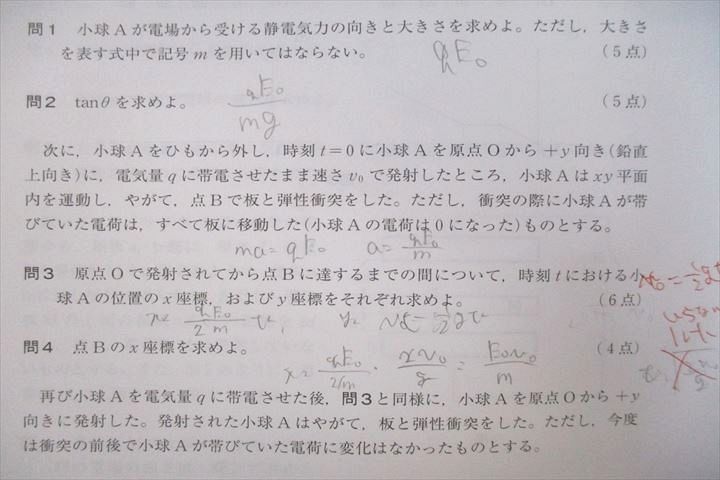 問1　小球Aが電場から受ける静電気力の向きと大きさを求めよ。ただし，大きさ
を表す式中で記号mを用いてはならない。　（5点）
qE₀
問2　tanθを求めよ。　（5点）
qE₀/mg
次に，小球Aをひもから外し，時刻t=0に小球Aを原点Oから+y向き(鉛直
上向き)に，電気量qに帯電させたまま速さv₀で発射したところ，小球Aはxy平面
内を運動し，やがて，点Bで板と弾性衝突をした。ただし，衝突の際に小球Aが帯
びていた電荷は，すべて板に移動した(小球Aの電荷は0になった)ものとする。
ma=qE₀　a=qE₀/m
問3　原点Oで発射されてから点Bに達するまでの間について，時刻tにおける小
球Aの位置のx座標，およびy座標をそれぞれ求めよ。　（6点）
問4　点Bのx座標を求めよ。　（4点）
再び小球Aを電気量qに帯電させた後，問3と同様に，小球Aを原点Oから+y
向きに発射した。発射された小球Aはやがて，板と弾性衝突をした。ただし，今度
は衝突の前後で小球Aが帯びていた電荷に変化はなかったものとする。